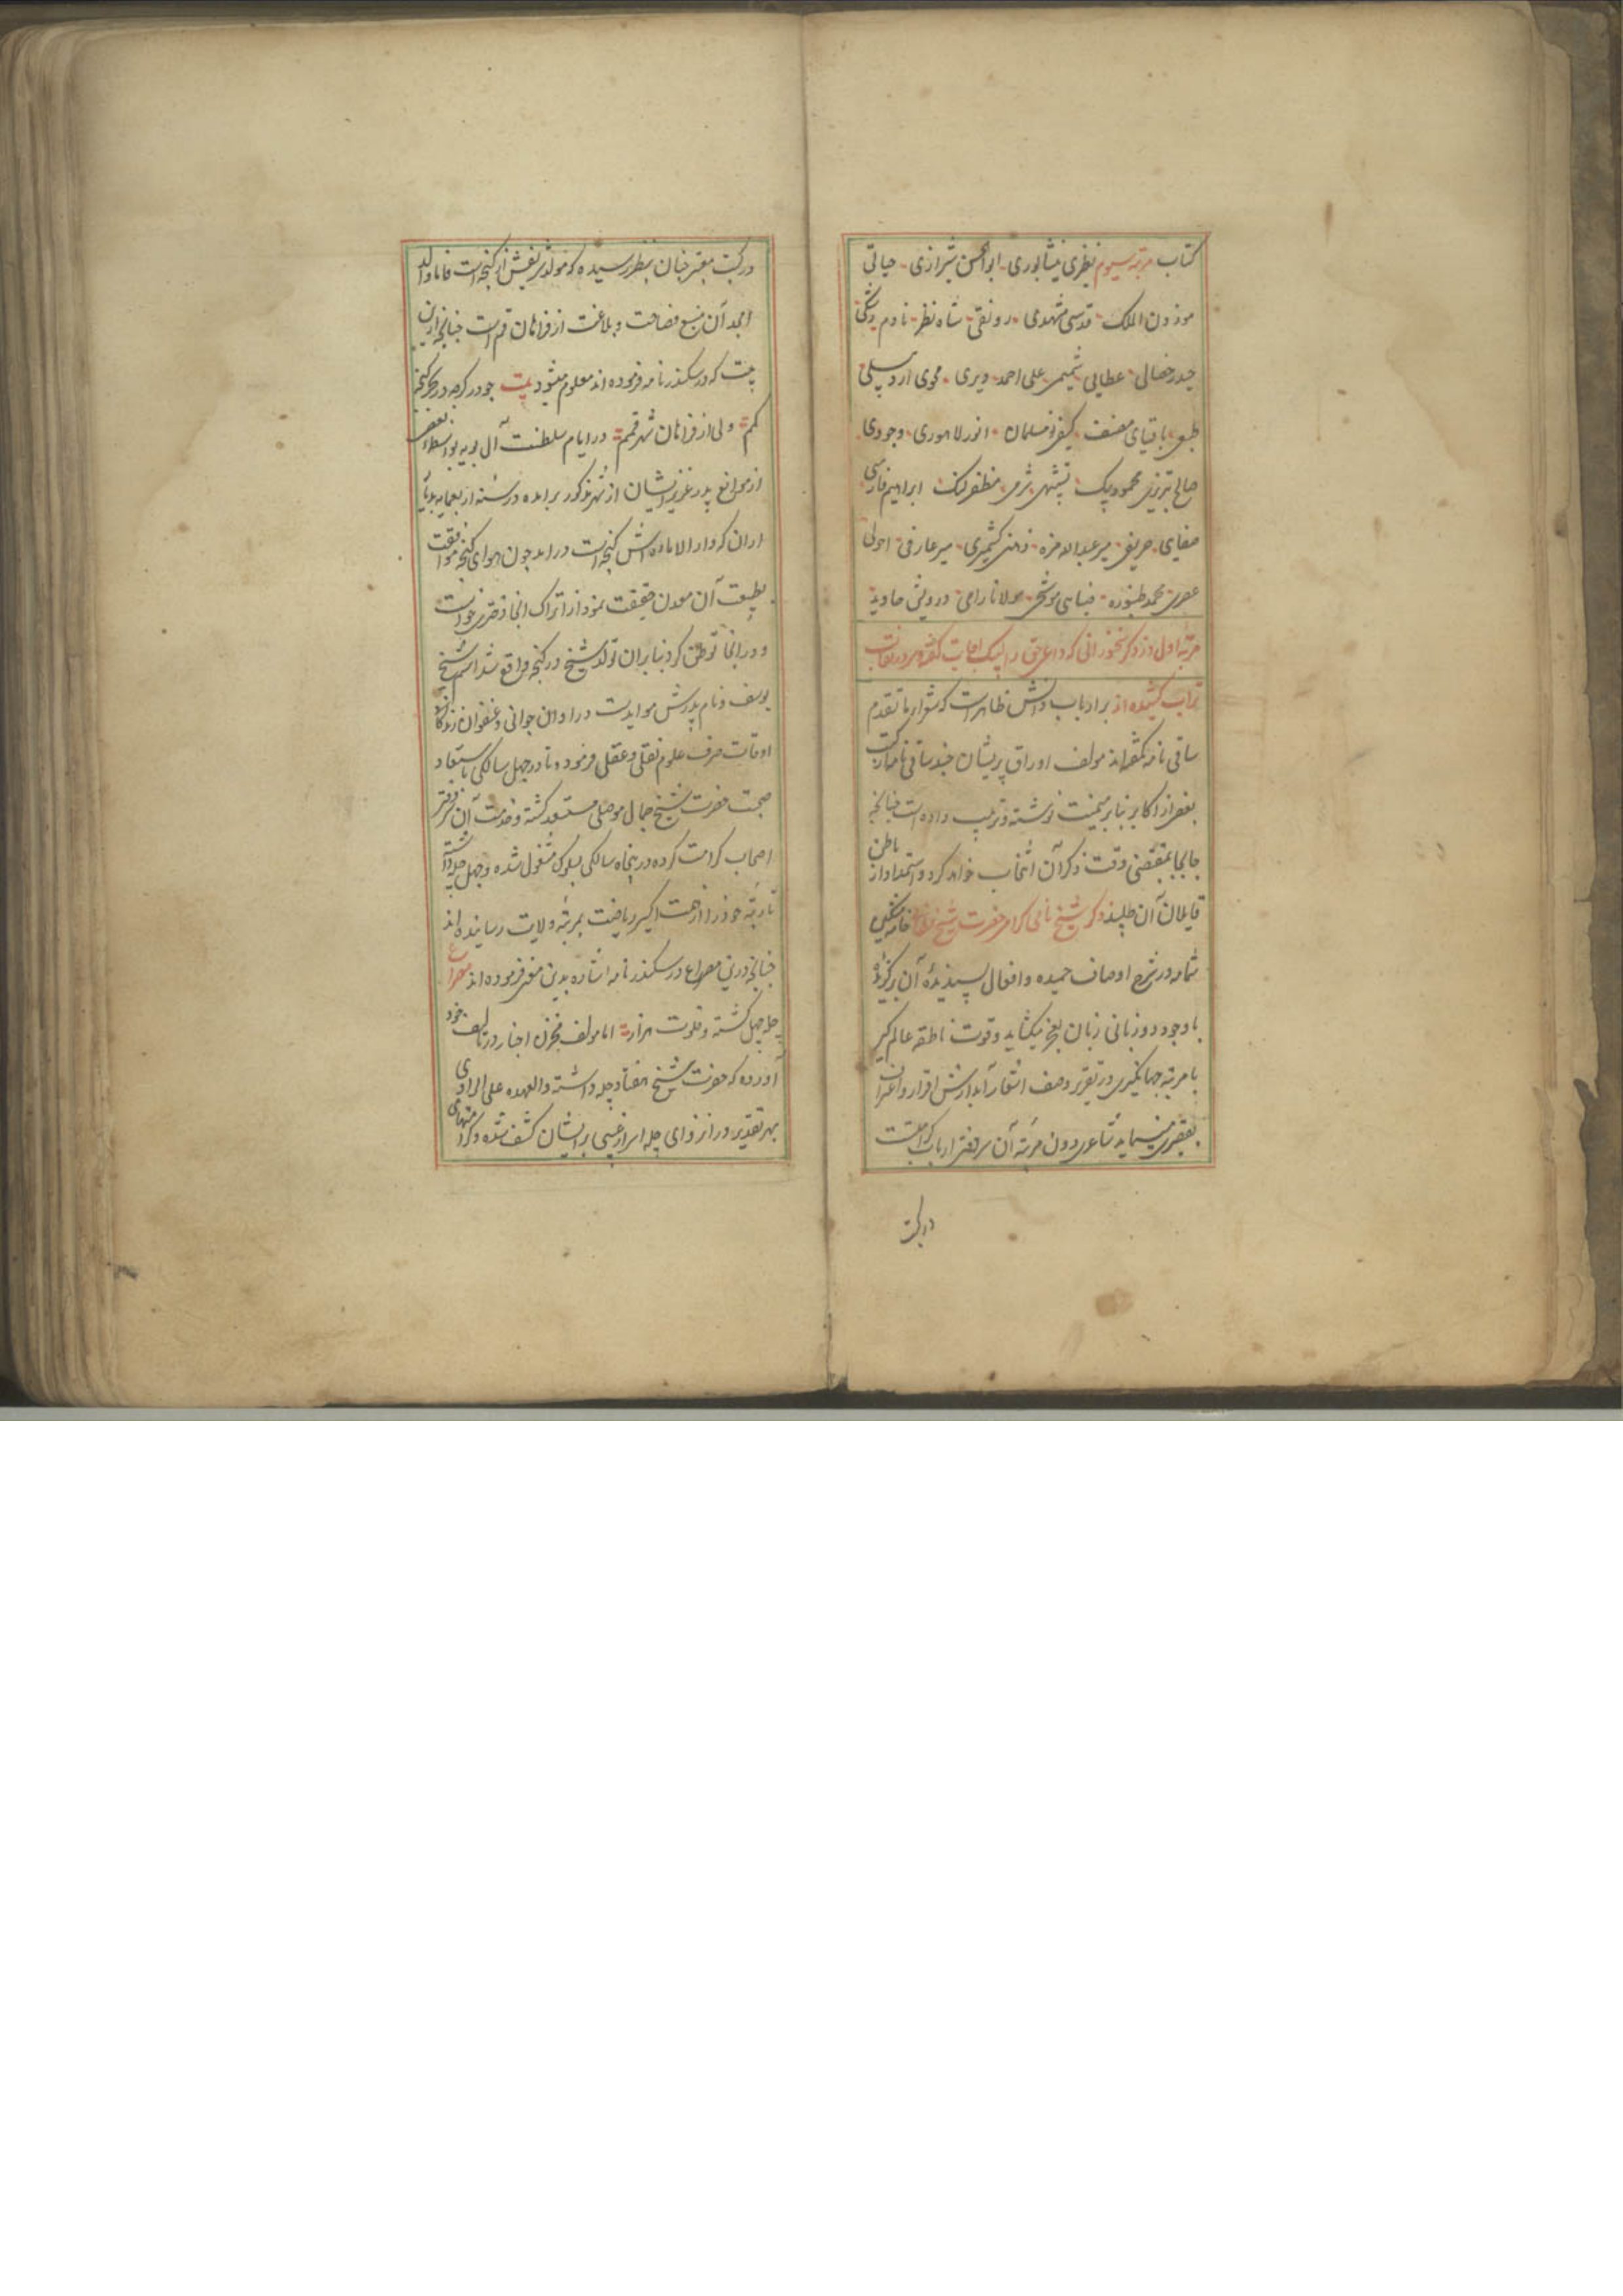 کتاب مرتبه سیوم نظری نیشابوری ابوالحسن شیرازی حیاتی
موزون الملک قدسی مشهدی رونقی شاه نظر نادم
حیدر خصالی عطایی شمیمی علی احمد دیری محوی اردبیلی
طبعی باقیای مصنف کیفر نومسلمان انور لاهوری وجودی
صالح تبریزی محمود بیک شرمی مظفر ابراهیم فارسی
صفایی حریفی میر عبدالله مزه ذهنی کشمیری میر عارفی احولی
محمد طنبوره ضیایی موشحی مولانا رامی درویش جاوید
مرتبه اول در ذکر سخنورانی که داعی حق را لبیک اجابت گفته سر در نقاب
تراب کشیده اند بر ارباب دانش ظاهر است که شعرای ما تقدم
ساقی نامه کم گفته اند مولف اوراق پریشان چند ساقی نامه از کتب
بعضی از اکابر بنا بر میمنت نوشته و ترتیب داده است چنانچه
جابجا بمقتضی وقت ذکر آن انتخاب خواهد کرد و استمداد از باطن
قایلان آن طلبید ذکر شیخ نامی گرامی حضرت شیخ نظامی خامه مشکین
شمامه در شرح اوصاف حمیده و افعال پسندیدهٔ آن برگزیده
با وجود دو زبانی زبان بعجز میکشاید و قوت ناطقه عالم گیر
با مرتبه جهانگیری در تقریر وصف اشعار آبدارش اقرار و اعتراف
بتقصیر مینماید شاعری دون مرتبه آن سر دفتر ارباب کرامتست
در کتب
در کتب معتبر چنان بنظر رسیده که مولد شریفش از گنجه است فاما والد
امجد آن منبع فصاحت و بلاغت از فراهان قم است چنانچه ازین
بیت که در سکندر نامه فرموده اند معلوم میشود بیت چو در گرچه در بحر گنجه
گمم ولی از فراهان شهر قمم در ایام سلطنت آل بویه بواسطه بعضی
از موانع پدر عزیز ایشان از شهر مذکور برامده در سنه اربعمایه بدیار
اران که دارالاماره اش گنجه است درامد چون هوای گنجه موافقت
بطبیعت آن معدن حقیقت نمود از اتراک انجا دختری خواست
و در انجا توطن کرد بنابران تولد شیخ در گنجه واقع شد اسم شیخ
یوسف و نام پدرش موایدست در اوان جوانی و عنفوان زندگانی
اوقات صرف علوم نقلی و عقلی فرموده تا در چهل سالگی باستعاد
صحبت حضرت شیخ جمال موصلی مستعد گشته و خدمت آن سر دفتر
اصحاب کرامت کرده در پنجاه سالگی بسلوک مشغول شده و چهل چله داشته
تا رتبه خود را از همت اکسیر ریاضت بمرتبه ولایت رسانیده اند
چنانچه درین مصراع در سکندر نامه اشاره بدین معنی فرموده اند مصراع
چله چهل گشته و خلوت هزار اما مولف مخزن اخبار در تالیف خود
آورده که حضرت شیخ هفتاد چله داشته والعهده علی الراوی
بهر تقدیر در انزوای چله اسرار غیبی بر ایشان کشف شده و کرامتهای